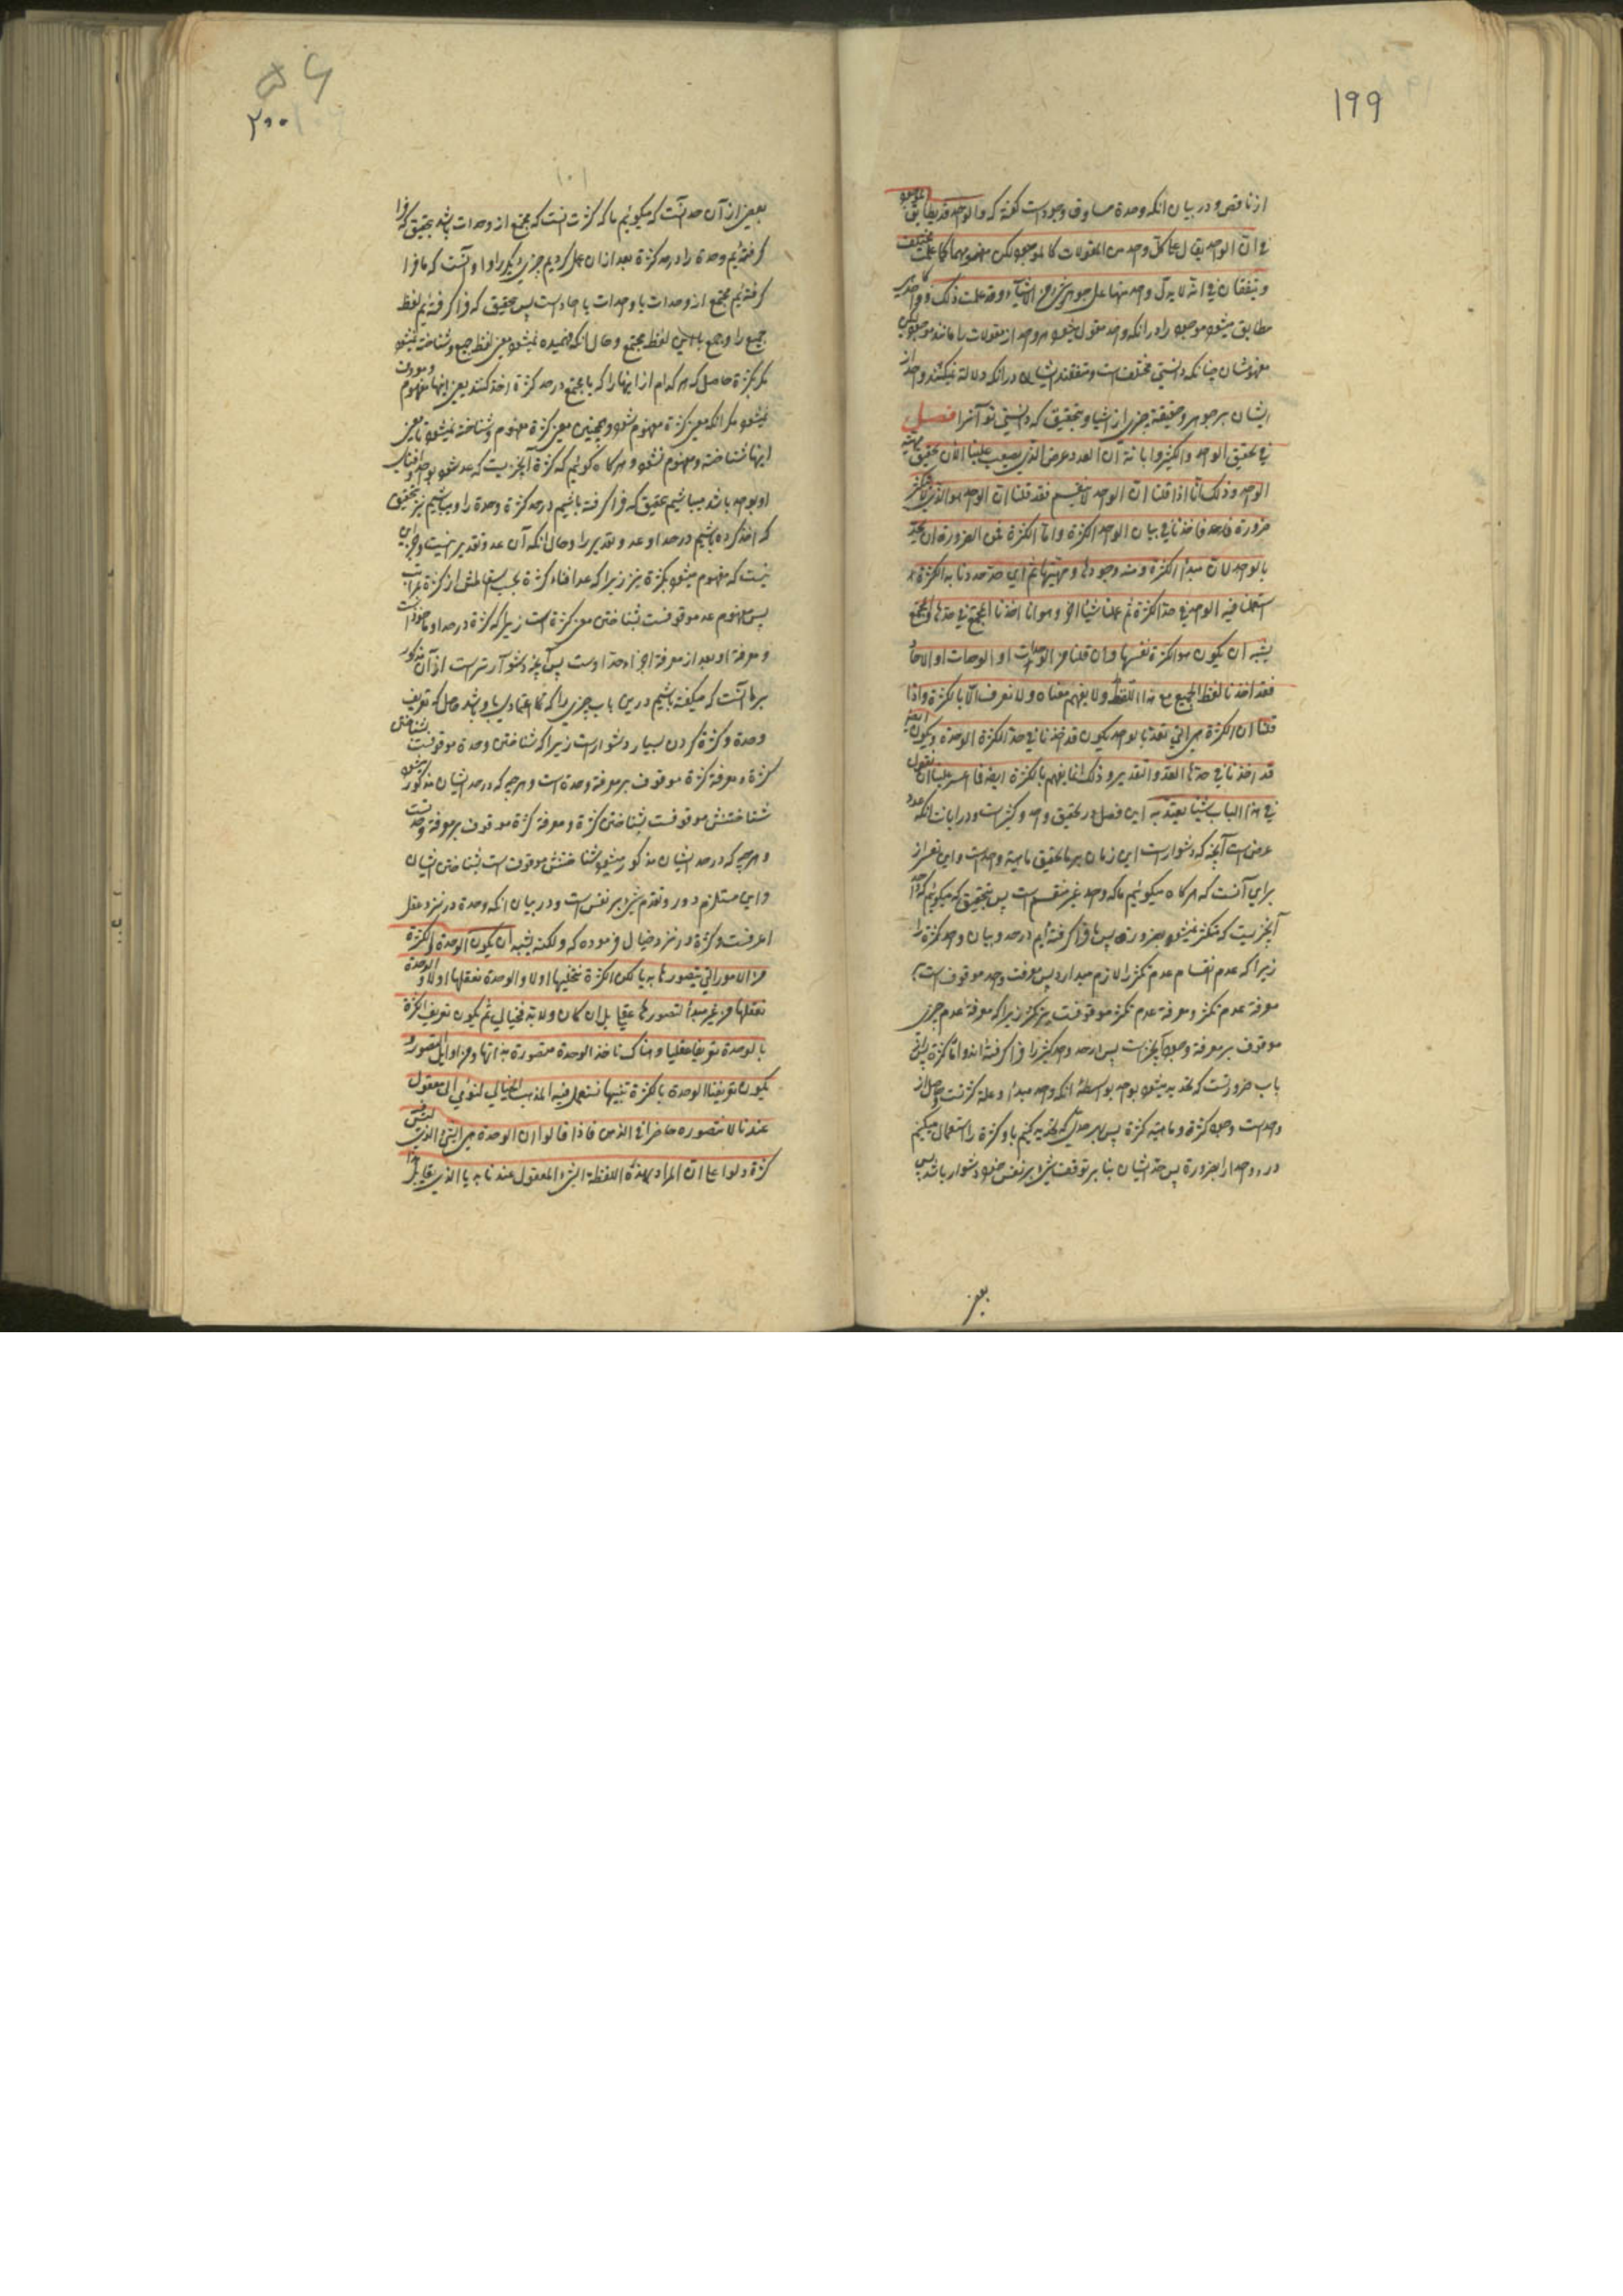 ۱۹۹
از ناقص و در بیان آنکه وحدة مساوق وجود است گفته که و الواحد قد یطابق الموجود
فی ان الواحد یقال علی کل واحد من المقولات کالموجود لکن مفهومهما کما علمت مختلف
و یتفقان فی انه لا یدل واحد منهما علی جوهر شیء من الاشیاء و قد علمت ذلک و واحد
مطابق میشود موجود را در آنکه واحد مقول میشود بر هر واحد از مقولات را مانند موجود لیکن
مفهومشان چنانکه دانستی مختلف است و متفقند ایشان در آنکه دلالة نمیکنند واحد از
ایشان بر جوهر و حقیقة چیزی از اشیا و بتحقیق که دانستی تو آنرا فصل
فی تحقیق الواحد و الکثیر و ابانة ان العدد عرض الذی یصعب علینا الآن تحقیق ماهیته
الواحد و ذلک انا اذا قلنا ان الواحد لا ینقسم فقد قلنا ان الواحد هو الذی لا یتکثر
ضرورة فاخذنا فی بیان الواحد الکثرة و اما الکثرة فمن الضرورة ان تحد
بالواحد لان مبدأ الکثرة و منه وجودها و مهیتها ثم ای حد حددنا به الکثرة
استعملنا فیه الواحد فی حد الکثرة ثم عملنا شیئا آخر و هو انا اخذنا المجتمع فی حدها و المجتمع
یشبه ان یکون هو الکثرة نفسها و ان قلنا من الوحدات او الوحدات او الآحاد
فقد اخذنا لفظ الجمیع مع هذا اللفظ و لا یفهم معناه و لا تعرف الا بالکثرة و اذا
قلنا ان الکثرة هی التی تعد بالواحد یکون قد اخذنا فی حد الکثرة الوحدة و یکون ایضا
قد اخذنا فی حدها العد و التقدیر و ذلک انما یفهم بالکثرة ایضا فما اعسر علینا ان نقول
فی هذا الباب شیئا یعتد به این فصل در تحقیق واحد و کثیر است و در ابانت آنکه عدد
عرض است آنچه که دشوار است این زمان بر ما تحقیق ماهیة واحد است و این تعسر از
برای آنست که هر گاه میگوئیم ما که واحد غیر منقسم است پس بتحقیق که میگوئیم که واحد
آنچیزیست که متکثر نمیشود بضرورة پس ما فرا گرفته ایم در حد و بیان واحد کثرة را
زیرا که عدم انقسام عدم تکثر را لازم میدارد پس معرفت واحد موقوف است
معرفة عدم تکثر و معرفة عدم تکثر موقوفست بر تکثر زیرا که معرفة عدم چیزی
موقوف بر معرفة وجود آنچیز است پس در حد واحد کثیر را فرا گرفته اند و اما کثرة پس
باب ضرورتست که تحدید میشود بواحد بواسطهٔ آنکه واحد مبدأ و علة کثرتست و حاصل از
واحد است وجود کثرة و ماهیة کثرة پس هر حدی که تحدید کنیم باو کثرة را استعمال میکنیم
در او واحد را بضرورة پس حد ایشان بنا بر توقف شیء بر نفس خود دشوار باشد پس
بعضی
۲۰۰
۱۰۱
بعضی از آن حد آنست که میگوئیم ما که کثرت آنست که مجتمع از وحدات باشد بتحقیق که فرا
گرفته ایم وحدة را در حد کثرة بعد از آن عمل کردیم چیزی دیگر را و او آنست که ما فرا
گرفته ایم مجتمع از وحدات یا واحدات یا احاد است پس بتحقیق که فرا گرفته ایم لفظ
جمیع را و جمع با این لفظ مجتمع و حال آنکه فهمیده نمیشود معنی لفظ جمیع و شناخته نمیشود
مگر بکثرة حاصل که هر کدام از اینها را که با مجتمع در حد کثرة اخذ کنند یعنی اینها مفهوم و معروف
نمیشود مگر آنکه معنی کثرة مفهوم شود و همچنین معنی کثرة مفهوم و شناخته نمیشود تا معنی
اینها شناخته و مفهوم نشود و هر گاه گوئیم که کثرة آنچیزیست که عد شود بواحد و افنای
او بواحد باشد میباشیم بتحقیق که فرا گرفته باشیم در حد کثرة وحدة را و میباشیم نیز بتحقیق
که اخذ کرده باشیم در حد او عد و تقدیر را و حال آنکه آن عد و تقدیر نیست
نیست که مفهوم میشود بکثرة نیز زیرا که عد افناء کثرة بحسب
پس مفهوم عد موقوفست بشناختن معنی کثرة است زیرا که کثرة در حد او ماخوذ است
و معرفة او بعد از معرفة اجزاء حد اوست پس آنچه دشوارتر است از آن مذکور
بر ما آنست که میگفته باشیم در این باب چیزی را که اعتمادی باو باشد حاصل که تعریف
وحدة و کثرة کردن بسیار دشوار است زیرا که شناختن وحدة موقوفست بشناختن
کثرة و معرفة کثرة موقوف بر معرفة وحدة است و هر چه که در حد ایشان مذکور میشود
شناختنش موقوفست بشناختن کثرة و معرفة کثرة موقوف بر معرفة وحدتست
و هر چه که در حد ایشان مذکور میشود شناختنش موقوفست بشناختن ایشان
و این مستلزم دور و تقدم شیء بر نفس است و در بیان آنکه وحدة در نزد عقل
اعرفست و کثرة در نزد خیال فرموده که و لکنه یشبه ان یکون الوحدة و الکثرة
من الامور التی نتصورها بدیا لکن الکثرة نتخیلها اولا و الوحدة نعقلها اولا و الوحدة
نعقلها من غیر مبدأ لتصورها عقلی بل ان کان و لا بد فخیالی ثم یکون تعریفنا الکثرة
بالوحدة تعریفا عقلیا و هناک ناخذ الوحدة متصورة بذاتها و من اوایل التصور و
یکون تعریفنا الوحدة بالکثرة تنبیها نستعمل فیه المذهب الخیالی لنومی الی معقول
عندنا لا نتصوره حاضرا فی الذهن فاذا قالوا ان الوحدة هی الشیء الذی لیس فیه
کثرة دلوا علی ان المراد بهذه اللفظة الشیء المعقول عندنا بدیا الذی یقابل هذا